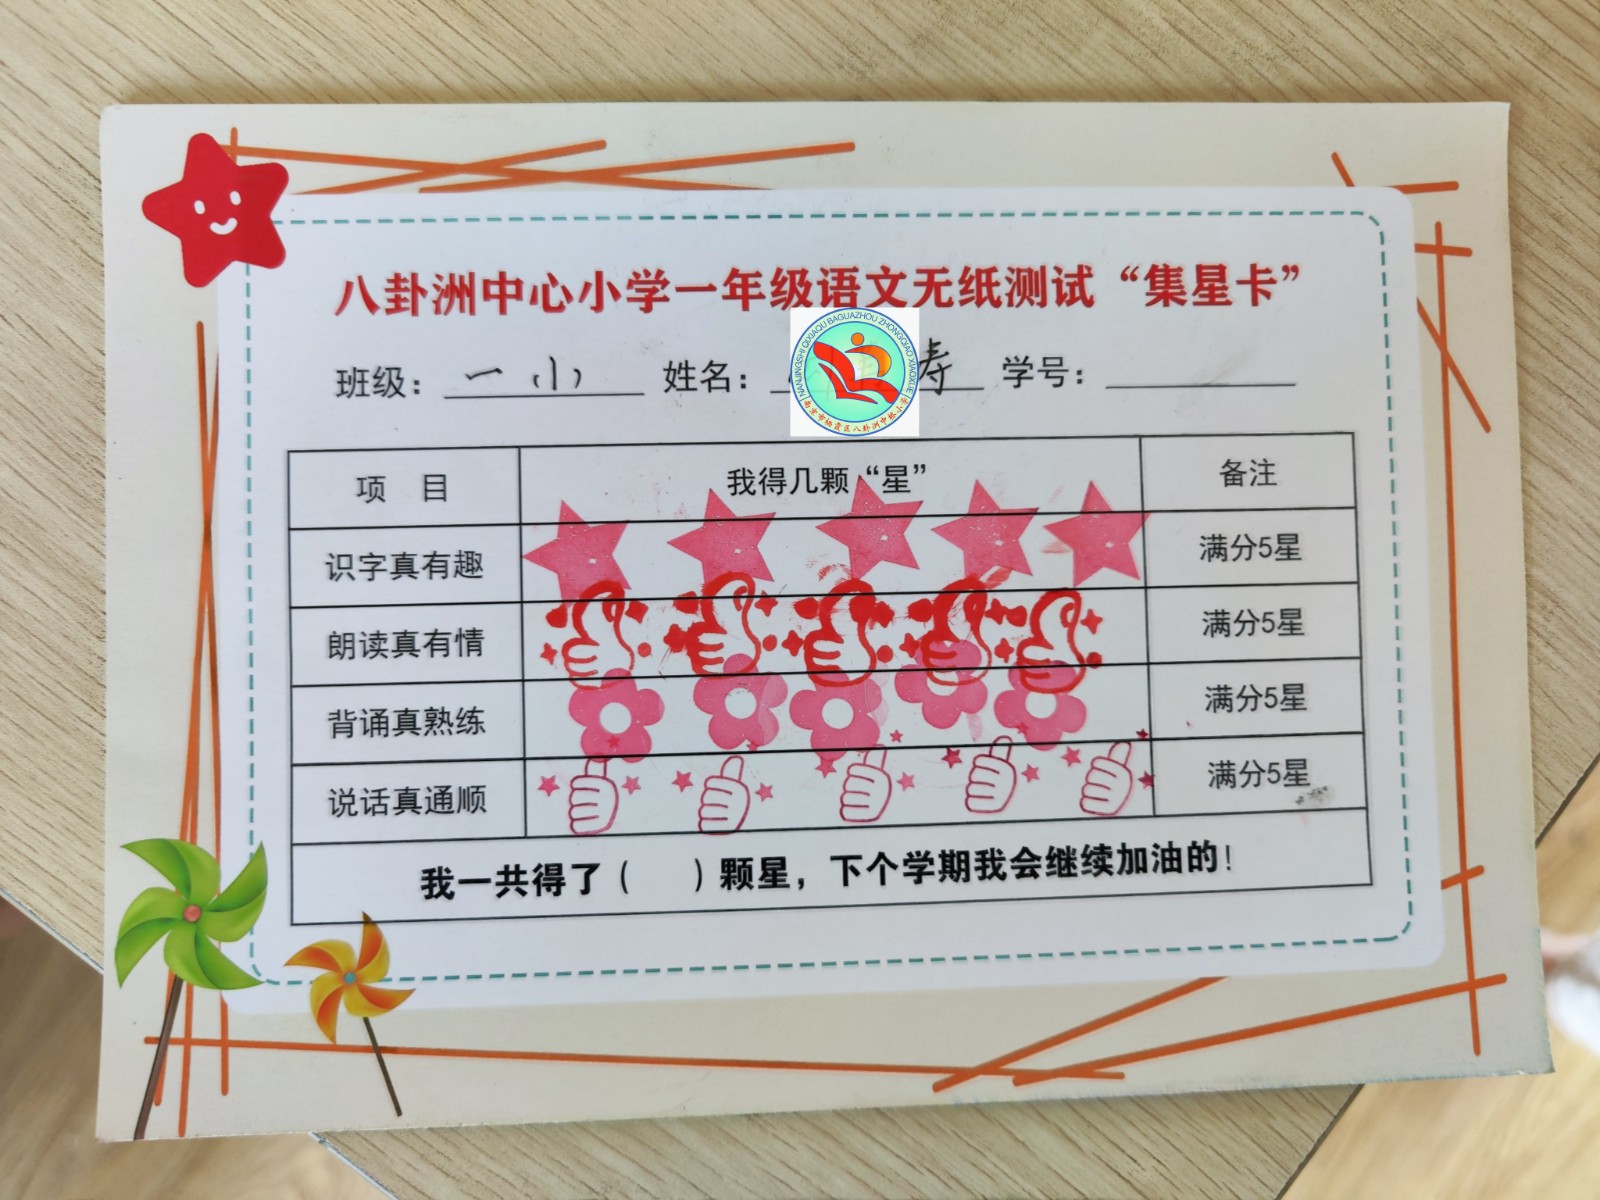 八卦洲中心小学一年级语文无纸测试“集星卡”
班级： 一（1） 姓名： 寿 学号：
NANJINGSHI QIXIAQU BAGUAZHOU ZHONGQIAO XIAOXUE
南京市栖霞区八卦洲中桥小学
项 目 我得几颗“星” 备注
识字真有趣 满分5星
朗读真有情 满分5星
背诵真熟练 满分5星
说话真通顺 满分5星
我一共得了（ ）颗星，下个学期我会继续加油的！